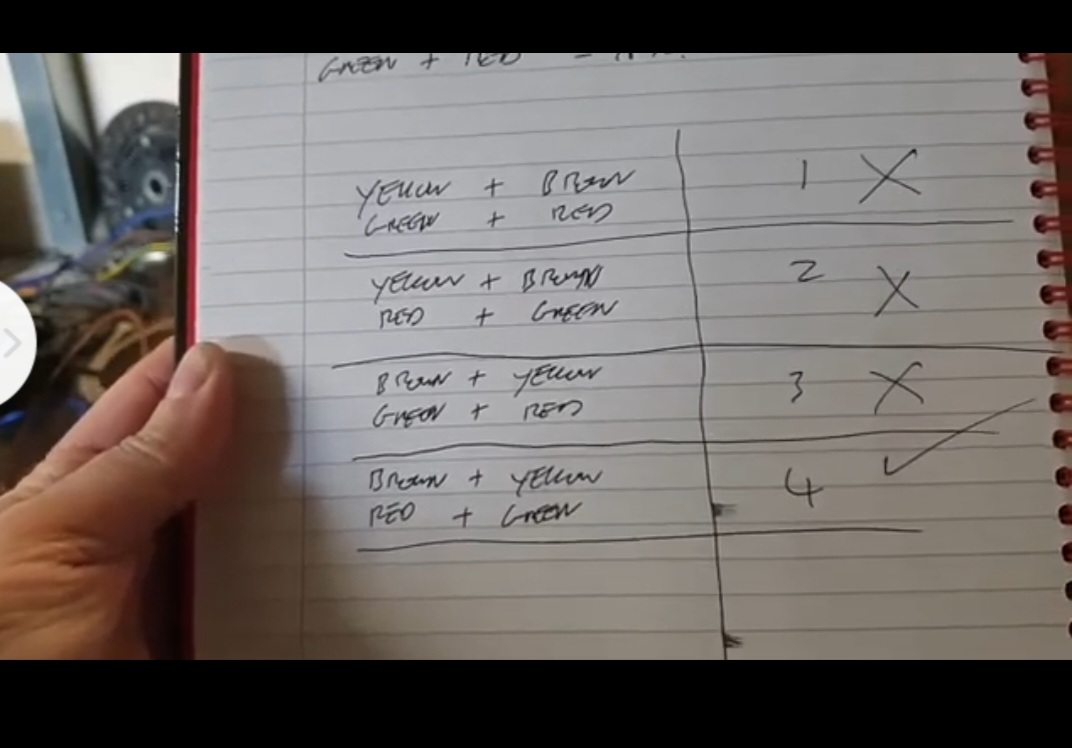 GREEN + RED =
YELLOW + BROWN 1 X
GREEN + RED
YELLOW + BROWN 2 X
RED + GREEN
BROWN + YELLOW 3 X
GREEN + RED
BROWN + YELLOW 4 ✓
RED + GREEN